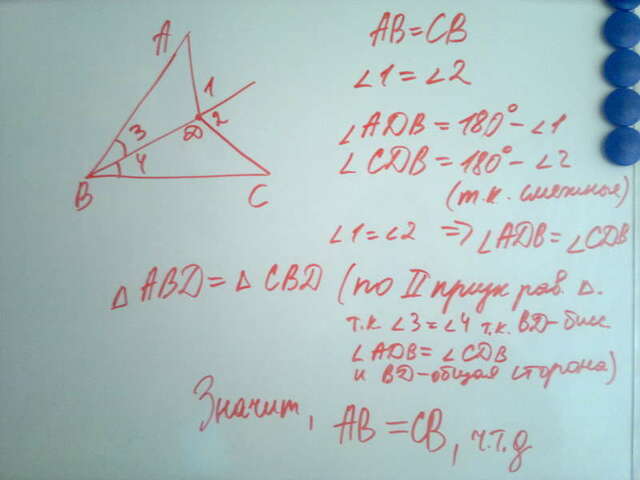 A
1
2
D
3
4
B
C
AB=CB
∠1=∠2
∠ADB=180°-∠1
∠CDB=180°-∠2
(т.к. смежные)
∠1=∠2 ⇒ ∠ADB=∠CDB
△ABD=△CBD (по II призн рав. △.
т.к ∠3=∠4 т.к. BD-бис.
∠ADB=∠CDB
и BD-общая сторона)
Значит, AB=CB, ч.т.д